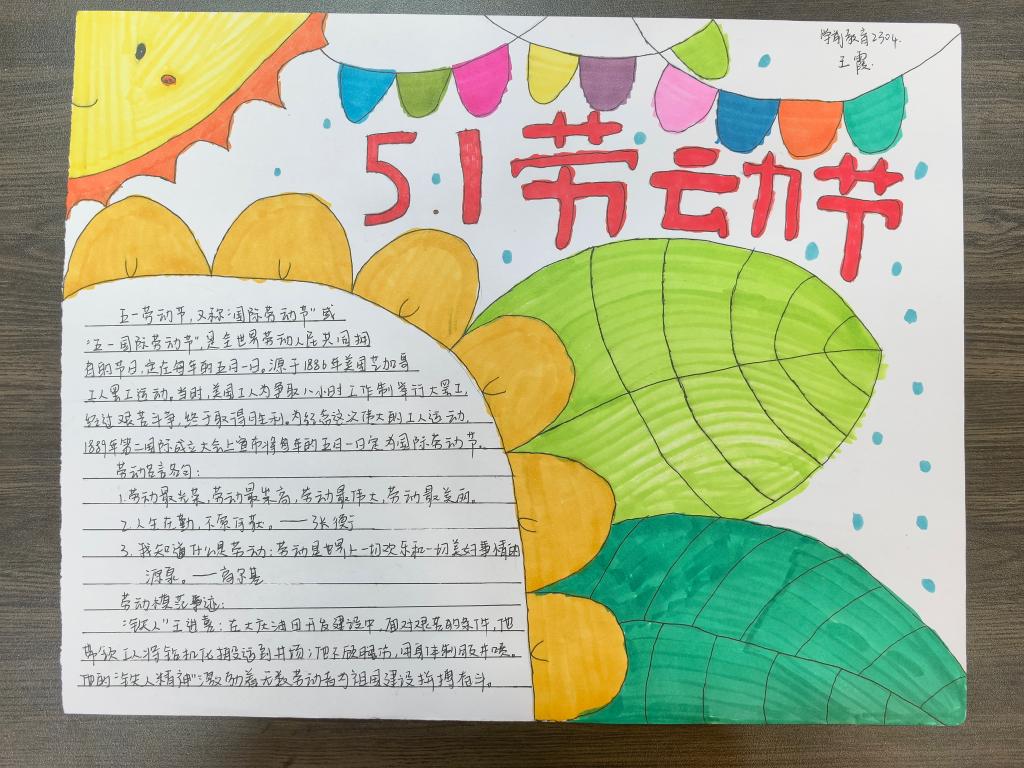 学前教育2304.
王霞.
5.1劳动节
五一劳动节,又称"国际劳动节"或
"五一国际劳动节",是全世界劳动人民共同拥
有的节日,定在每年的五月一日。源于1886年美国芝加哥
工人罢工运动,当时,美国工人为争取八小时工作制举行大罢工,
经过艰苦斗争,终于取得胜利。为纪念这次伟大的工人运动,
1889年第二国际成立大会上宣布将每年的五月一日定为国际劳动节。
劳动名言名句:
1.劳动最光荣,劳动最崇高,劳动最伟大,劳动最美丽。
2.人生在勤,不索何获。——张衡
3.我知道什么是劳动:劳动是世界上一切欢乐和一切美好事情的
源泉。——高尔基
劳动模范事迹:
"铁人"王进喜:在大庆油田开发建设中,面对艰苦的条件,他
带领工人将钻机化搬运到井场;他不顾腿伤,用身体制服井喷。
他的"铁人精神"激励着无数劳动者为祖国建设拼搏奋斗。